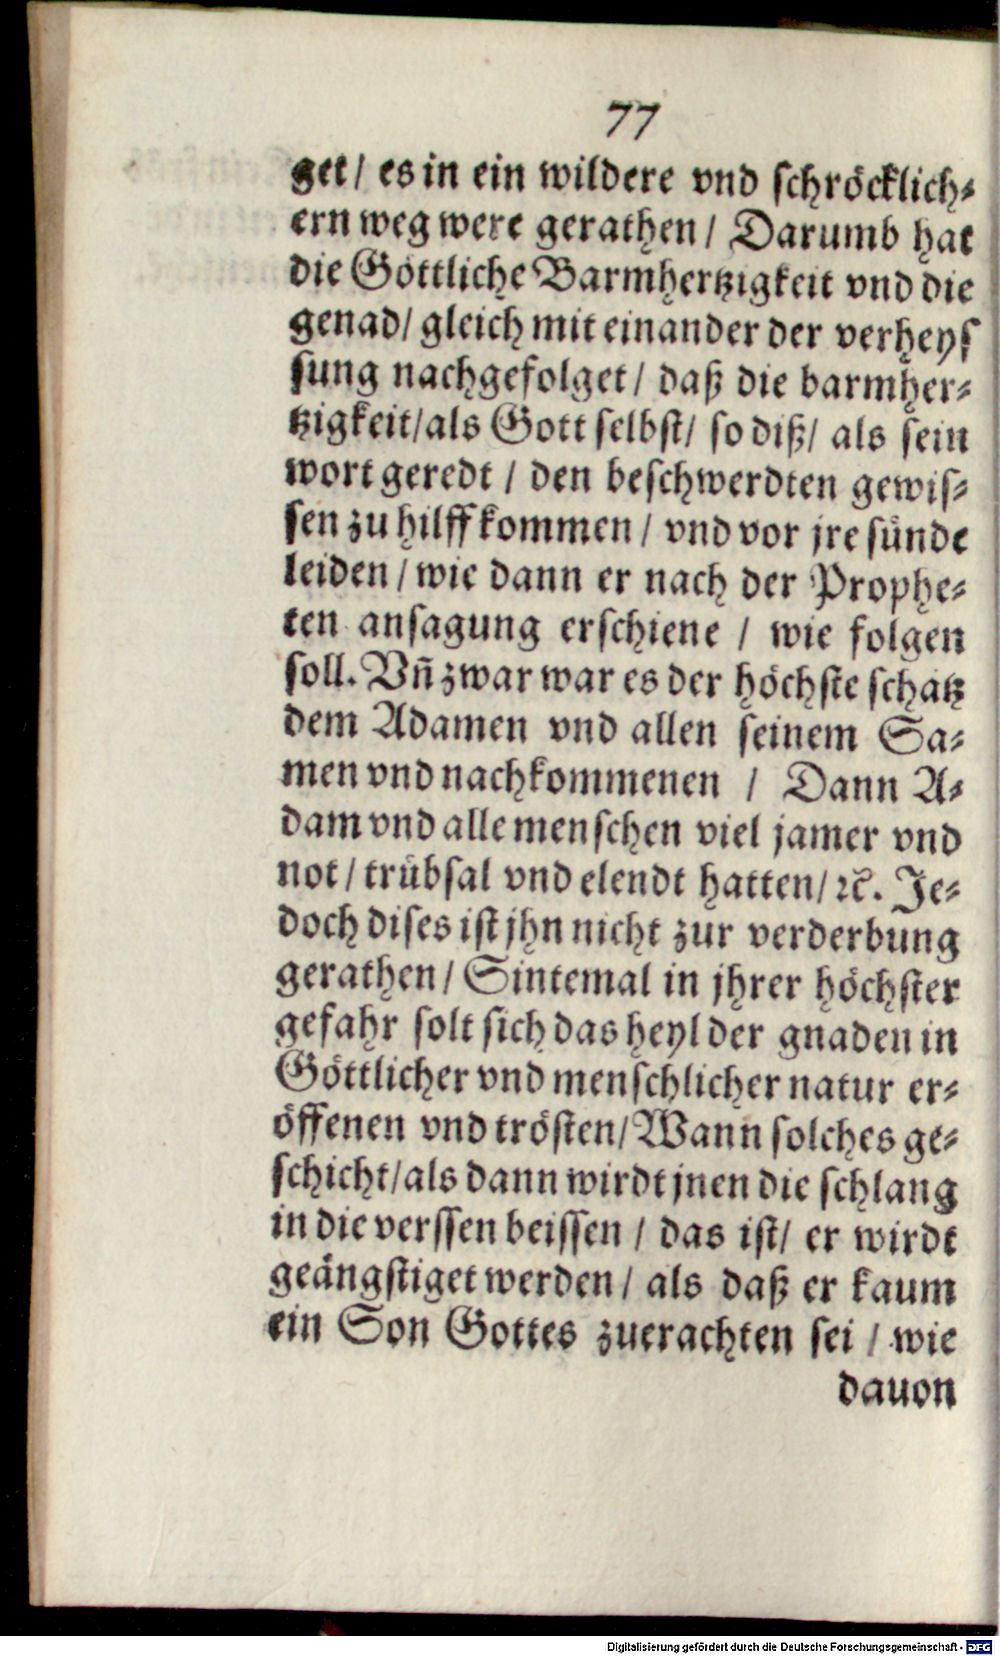 77
get / es in ein wildere vnd schröcklich⸗
ern weg were gerathen / Darumb hat
die Göttliche Barmhertzigkeit vnd die
genad / gleich mit einander der verheys
sung nachgefolget / daß die barmher⸗
tzigkeit / als Gott selbst / so diß / als sein
wort geredt / den beschwerdten gewis⸗
sen zu hilff kommen / vnd vor jre sünde
leiden / wie dann er nach der Prophe⸗
ten ansagung erschiene / wie folgen
soll. Vñ zwar war es der höchste schatz
dem Adamen vnd allen seinem Sa⸗
men vnd nachkommenen / Dann A⸗
dam vnd alle menschen viel jamer vnd
not / trübsal vnd elendt hatten / ꝛc. Je⸗
doch dises ist jhn nicht zur verderbung
gerathen / Sintemal in jhrer höchster
gefahr solt sich das heyl der gnaden in
Göttlicher vnd menschlicher natur er⸗
öffenen vnd trösten / Wann solches ge⸗
schicht / als dann wirdt jnen die schlang
in die verssen beissen / das ist / er wirdt
geängstiget werden / als daß er kaum
ein Son Gottes zuerachten sei / wie
dauon
Digitalisierung gefördert durch die Deutsche Forschungsgemeinschaft - DFG